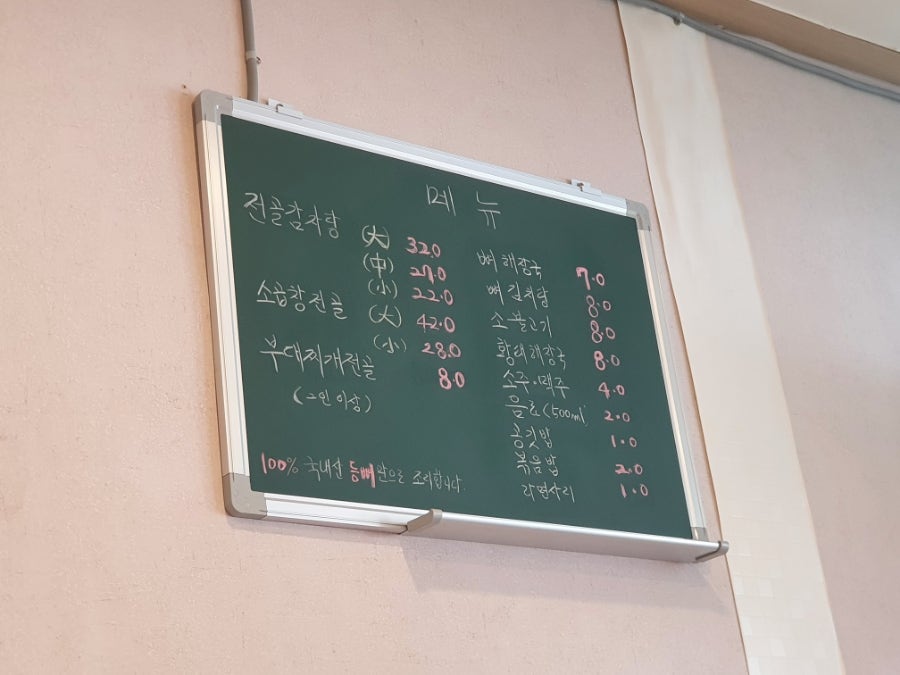 메뉴
전골감자탕 (大) 32.0
(中) 27.0
(小) 22.0
소곱창전골 (大) 42.0
(小) 28.0
부대찌개전골 8.0
(2인 이상)
100% 국내산 등뼈만으로 조리합니다.
뼈해장국 7.0
뼈김치탕 8.0
소불고기 8.0
황태해장국 8.0
소주·맥주 4.0
음료(500ml) 2.0
공깃밥 1.0
볶음밥 2.0
라면사리 1.0